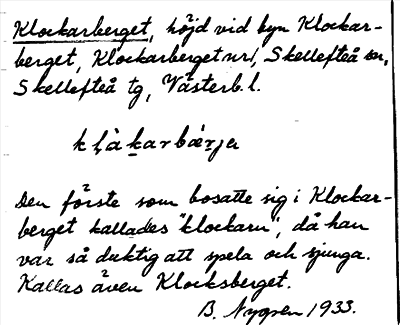 Klockarberget, höjd vid byn Klockar-
berget, Klockarberget nr 1, Skellefteå sn,
Skellefteå tg, Västerb. l.
Den förste som bosatte sig i Klockar-
berget kallades "klockarn", då han
var så duktig att spela och sjunga.
Kallas även Klocksberget.
B. Nygren 1933.